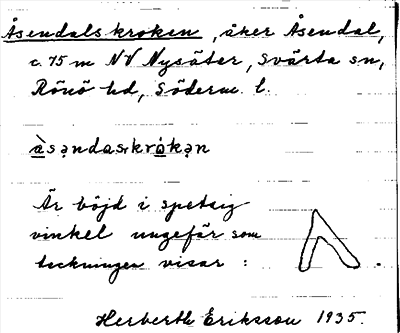 Åsendalskroken, åker Åsendal,
c. 75 m NV Nysäter, Svärta sn,
Rönö hd, Söderm. l.
àsəndaskròkən
Är böjd i spetsig
vinkel ungefär som
teckningen visar :
Herberth Eriksson 1935.